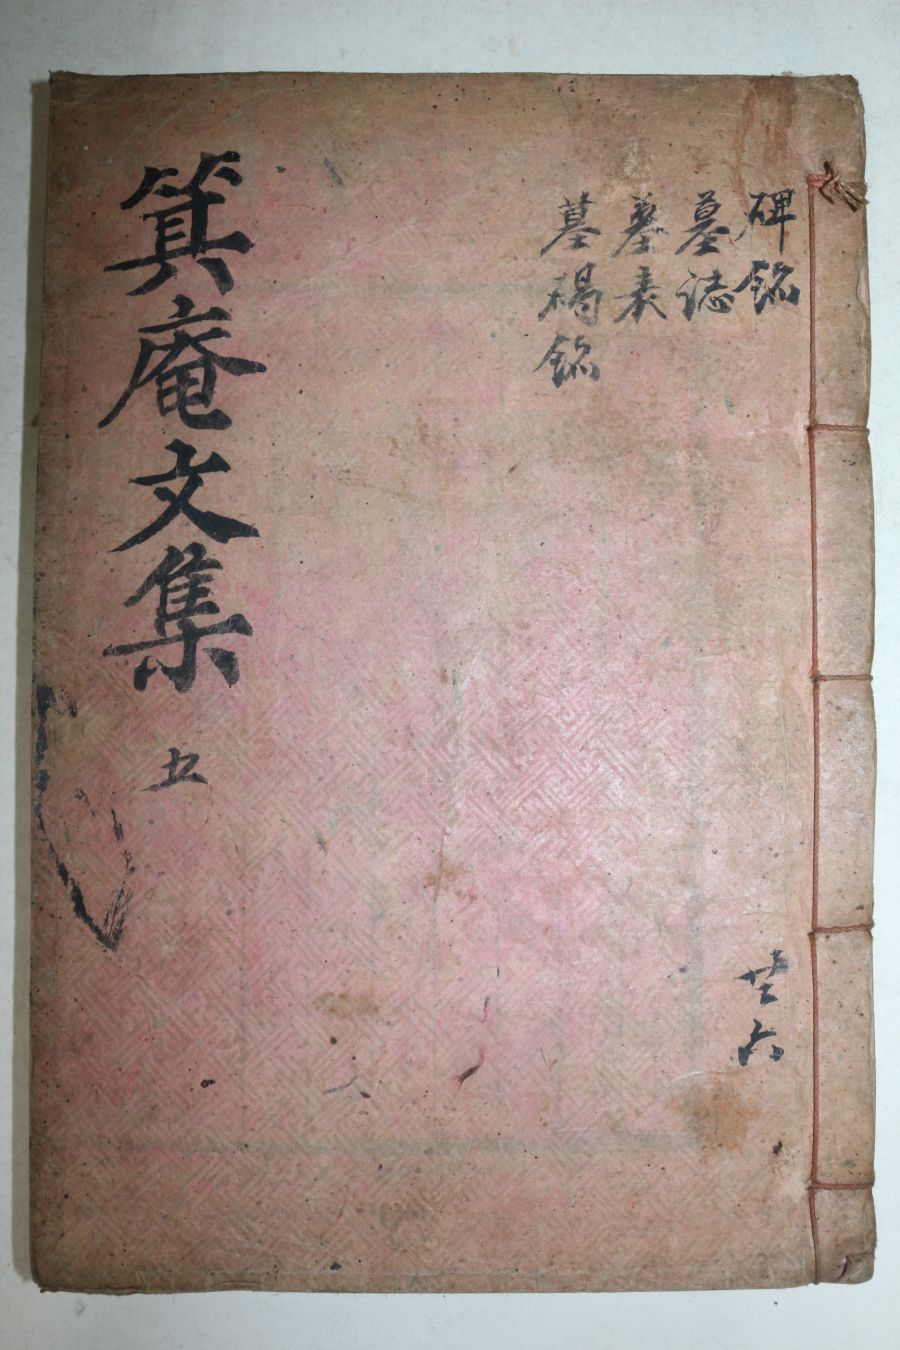 碑銘
墓誌
墓表
墓碣銘
共六
箕庵文集 五